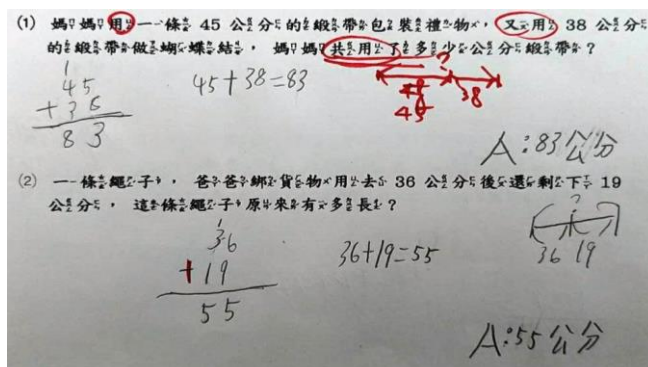 (1) 媽媽用一條 45 公分的緞帶包裝禮物，又用 38 公分
的緞帶做蝴蝶結，媽媽共用了多少公分緞帶？
45 + 38 = 83
1
45
+ 38
83
?
45
38
A：83公分
(2) 一條繩子，爸爸綁貨物用去 36 公分後還剩下 19
公分，這條繩子原來有多長？
1
36
+ 19
55
36+19=55
?
36 19
A：55公分